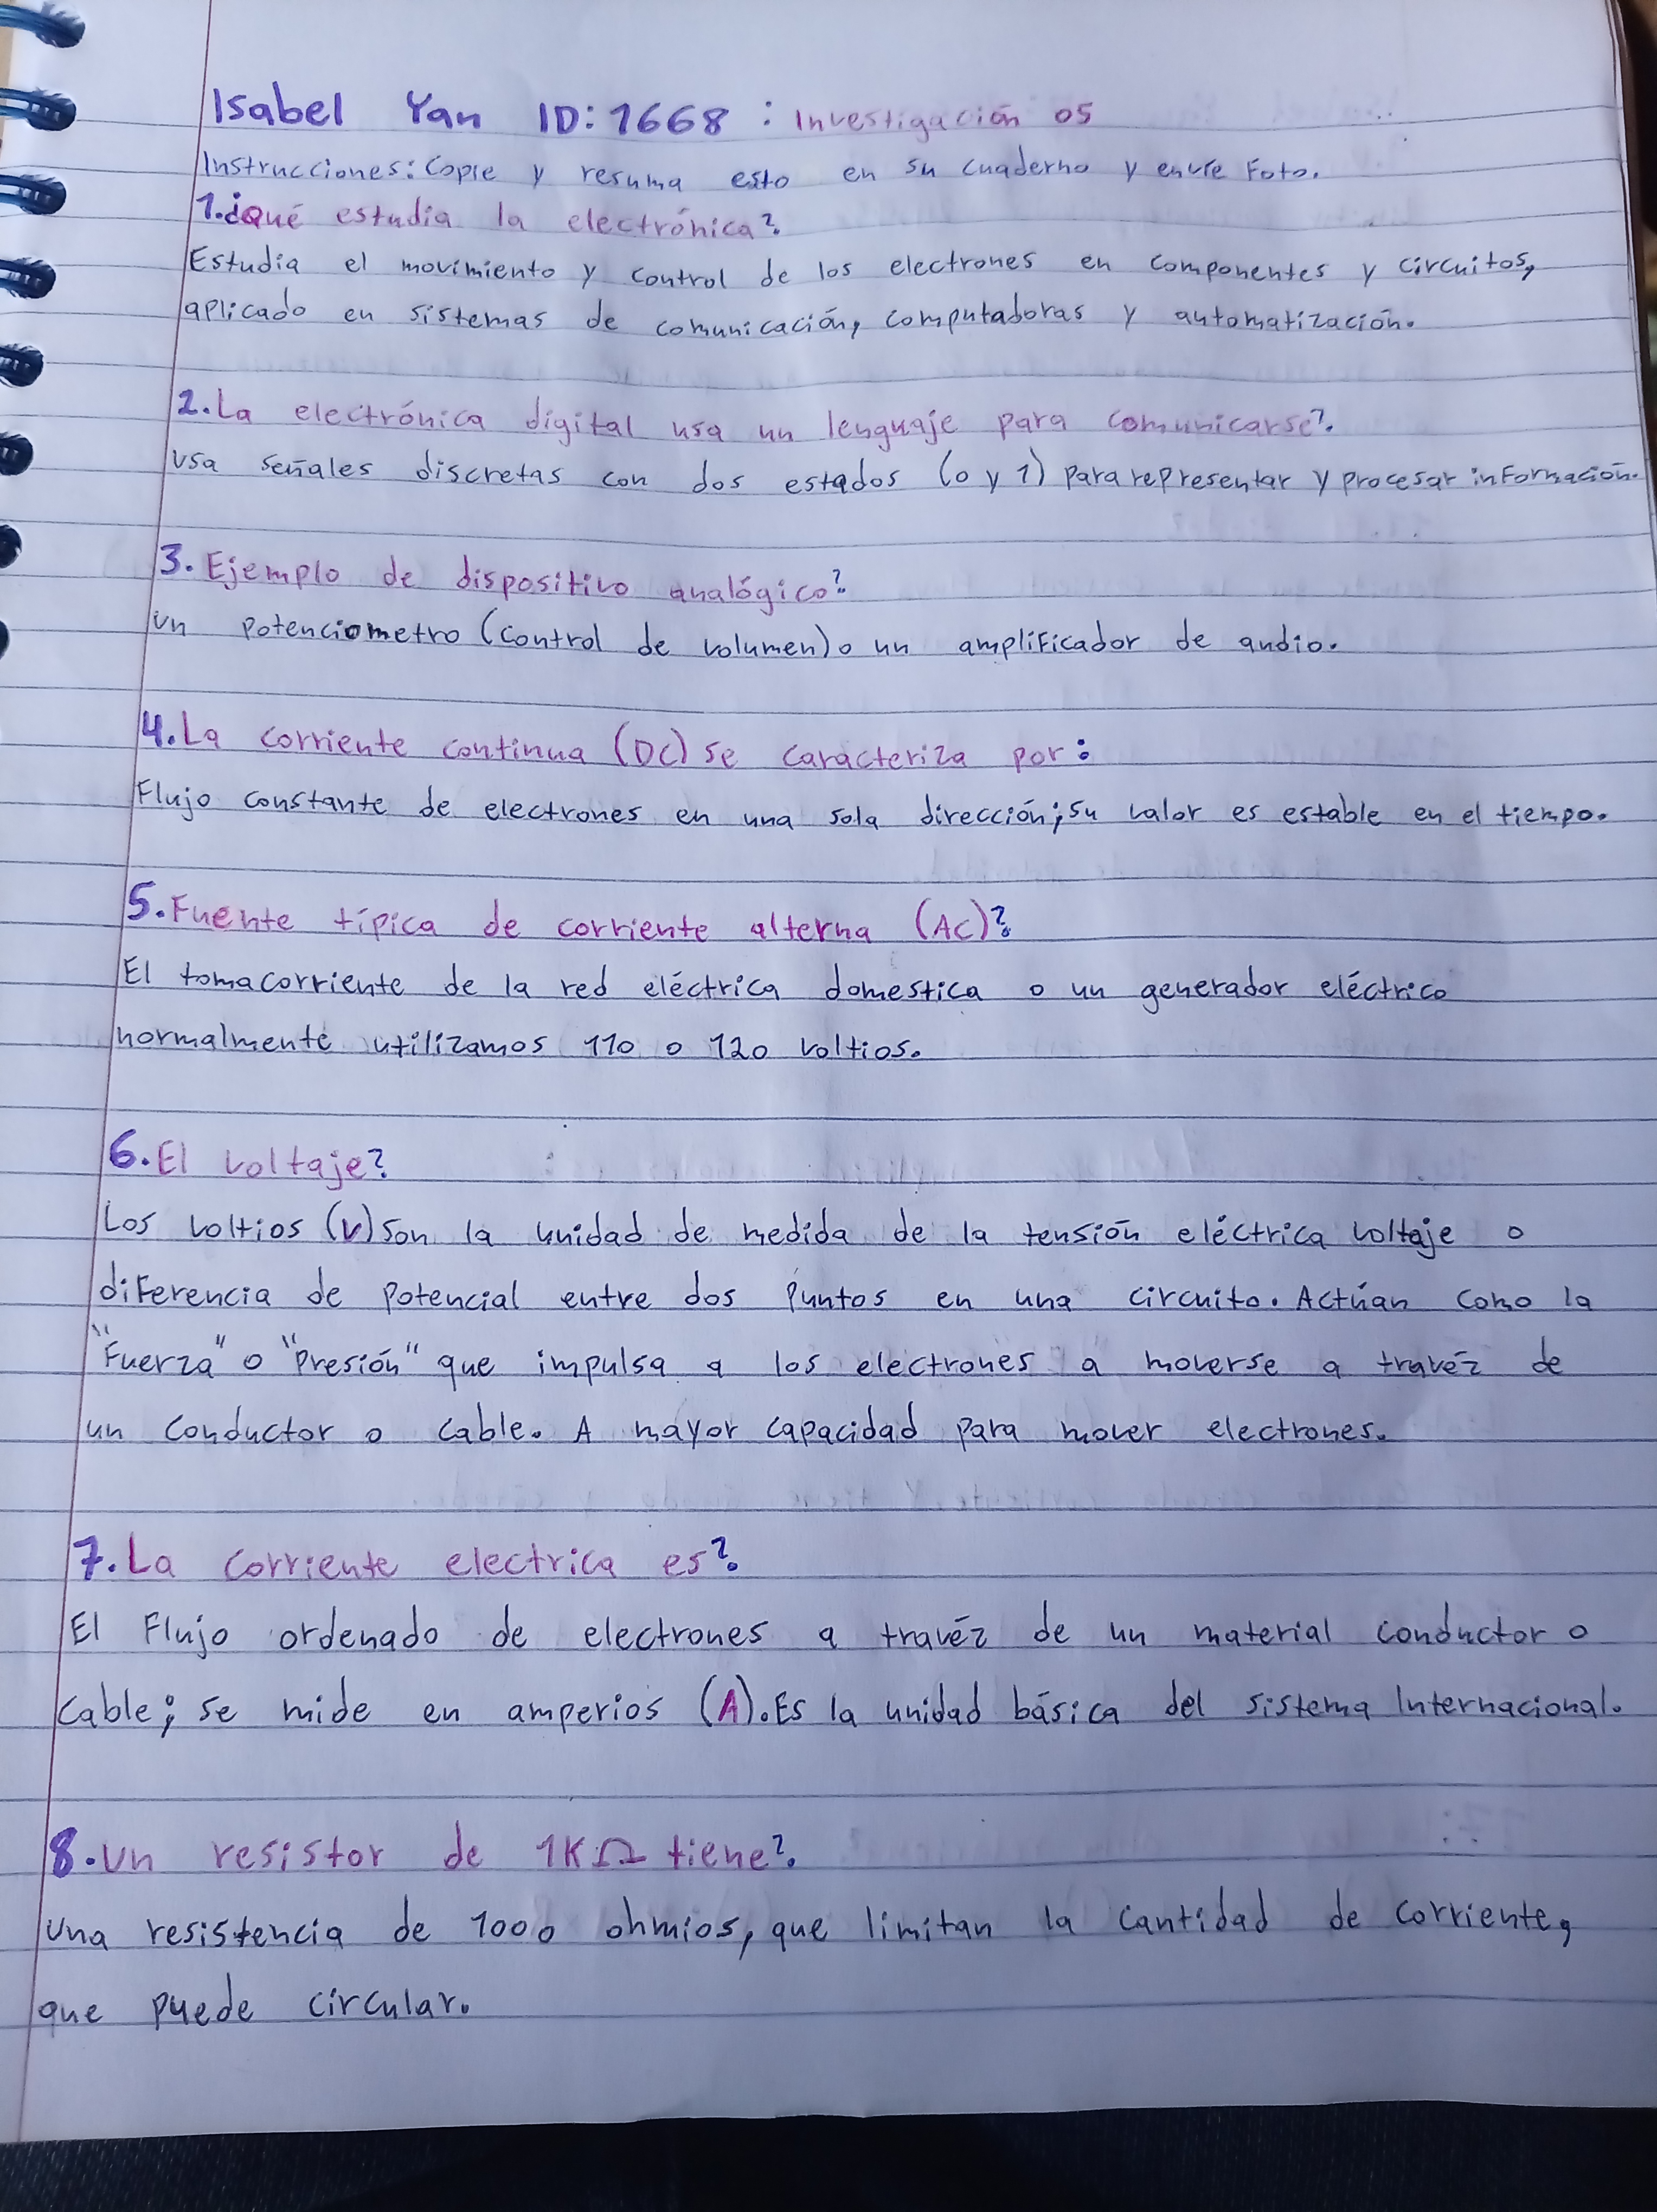 Isabel Yan ID: 1668 : Investigación 05
Instrucciones: Copie y resuma esto en su cuaderno y envíe Foto.
1. ¿Qué estudia la electrónica?
Estudia el movimiento y control de los electrones en componentes y circuitos,
aplicado en sistemas de comunicación, computadoras y automatización.
2. La electrónica digital usa un lenguaje para comunicarse?
Usa señales discretas con dos estados (0 y 1) para representar y procesar información.
3. Ejemplo de dispositivo analógico?
Un potenciometro (control de volumen) o un amplificador de audio.
4. La corriente continua (DC) se caracteriza por:
Flujo constante de electrones en una sola dirección; su valor es estable en el tiempo.
5. Fuente típica de corriente alterna (AC)?
El tomacorriente de la red eléctrica domestica o un generador eléctrico
normalmente utilizamos 110 o 120 voltios.
6. El voltaje?
Los voltios (V) son la unidad de medida de la tensión eléctrica voltaje o
diferencia de potencial entre dos puntos en una circuito. Actúan como la
"Fuerza" o "Presión" que impulsa a los electrones a moverse a travéz de
un conductor o cable. A mayor capacidad para mover electrones.
7. La corriente electrica es?
El Flujo ordenado de electrones a travéz de un material conductor o
cable; se mide en amperios (A). Es la unidad básica del sistema Internacional.
8. Un resistor de 1KΩ tiene?
Una resistencia de 1000 ohmios, que limitan la cantidad de corriente,
que puede circular.